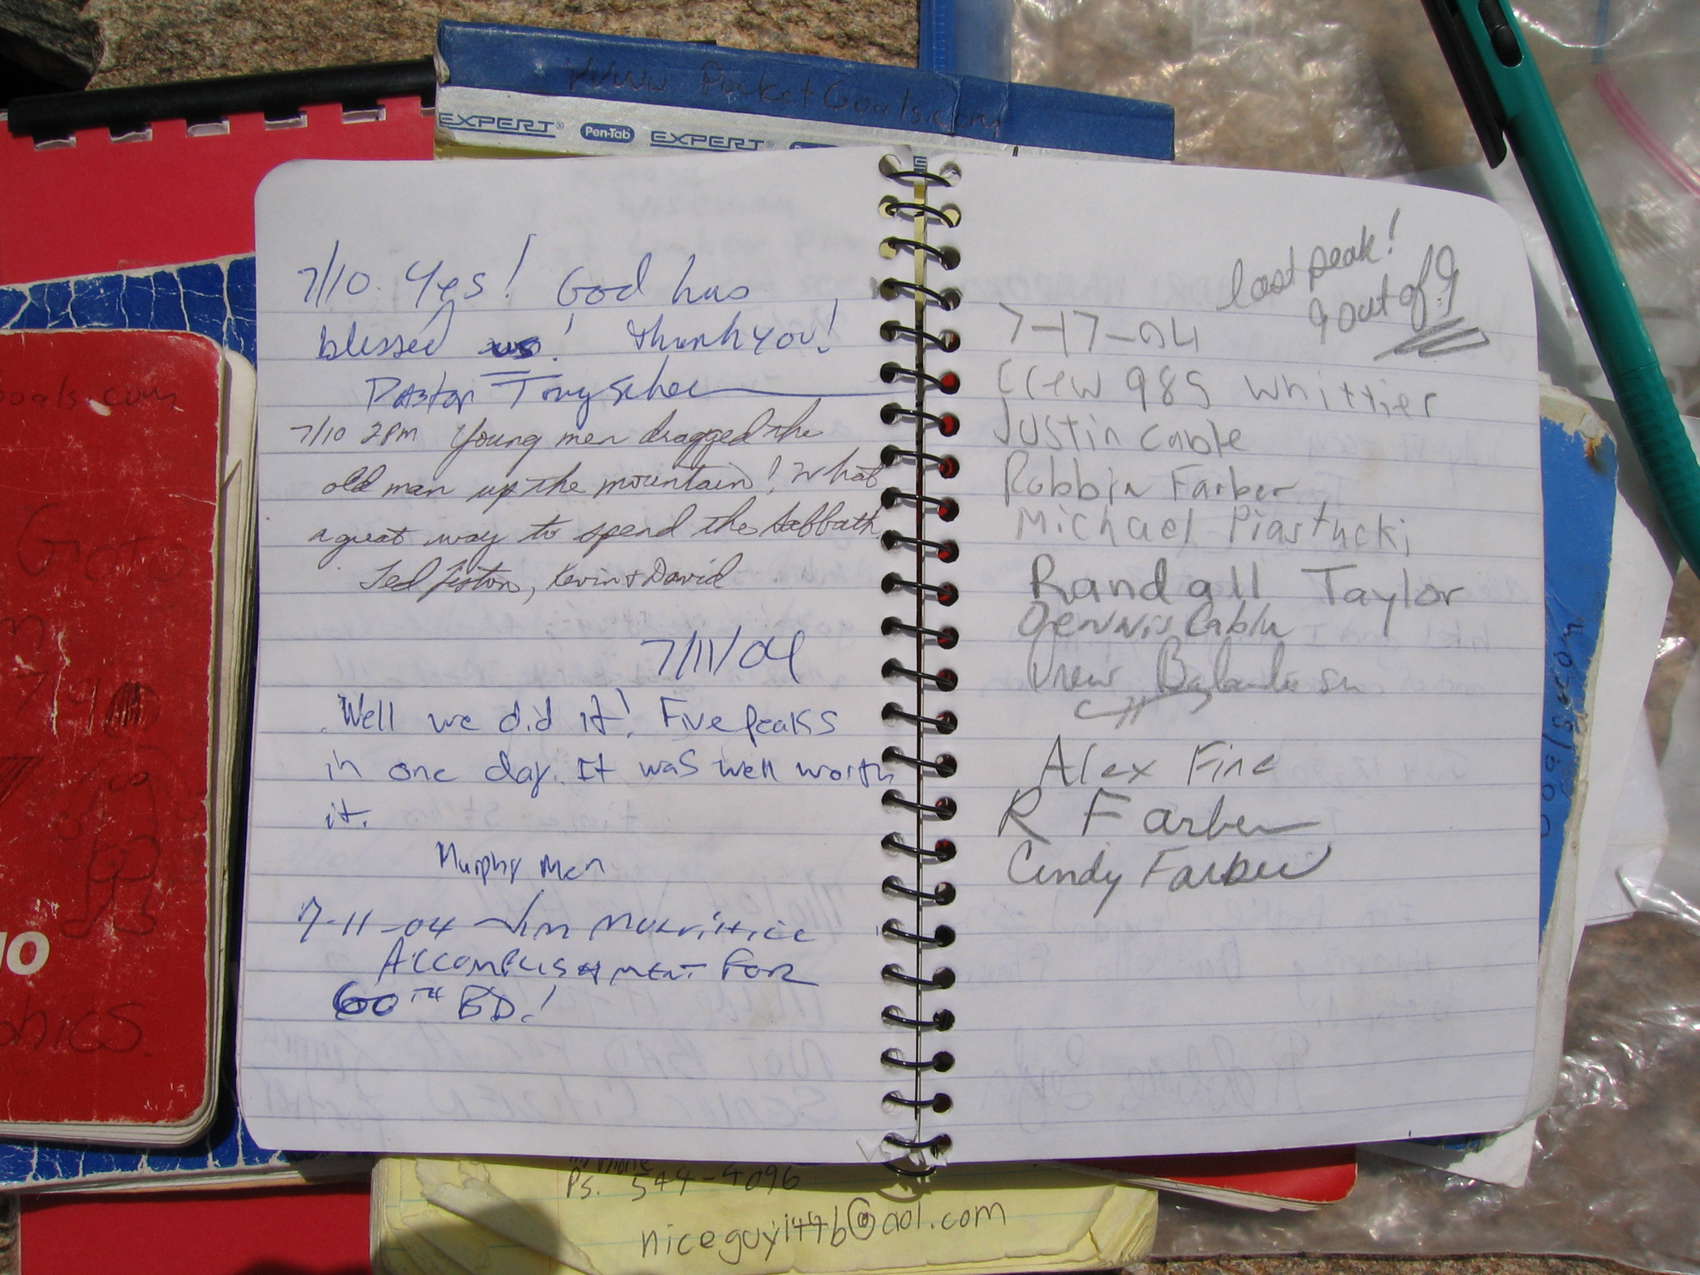 www.PocketGoals.com
EXPERT Pen-Tab EXPERT
7/10 Yes! God has
blessed us! Thank you!
Pastor Tony
7/10 2PM Young men dragged the
old man up the mountain! What
a great way to spend the Sabbath
Ted, Kevin & David
7/11/04
Well we did it! Five peaks
in one day. It was well worth
it.
Murphy Men
7-11-04 Jim
ACCOMPLISHMENT FOR
60TH BD!
last peak!
9 out of 9
7-17-04
Crew 985 Whittier
Justin Cable
Robbin Farber
Michael Piastucki
Randall Taylor
Dennis Cable
Drew
Alex Fine
R Farber
Cindy Farber
oals.com
Goto
HO
onics.
goals.com
Ps. 544-4096
@aol.com